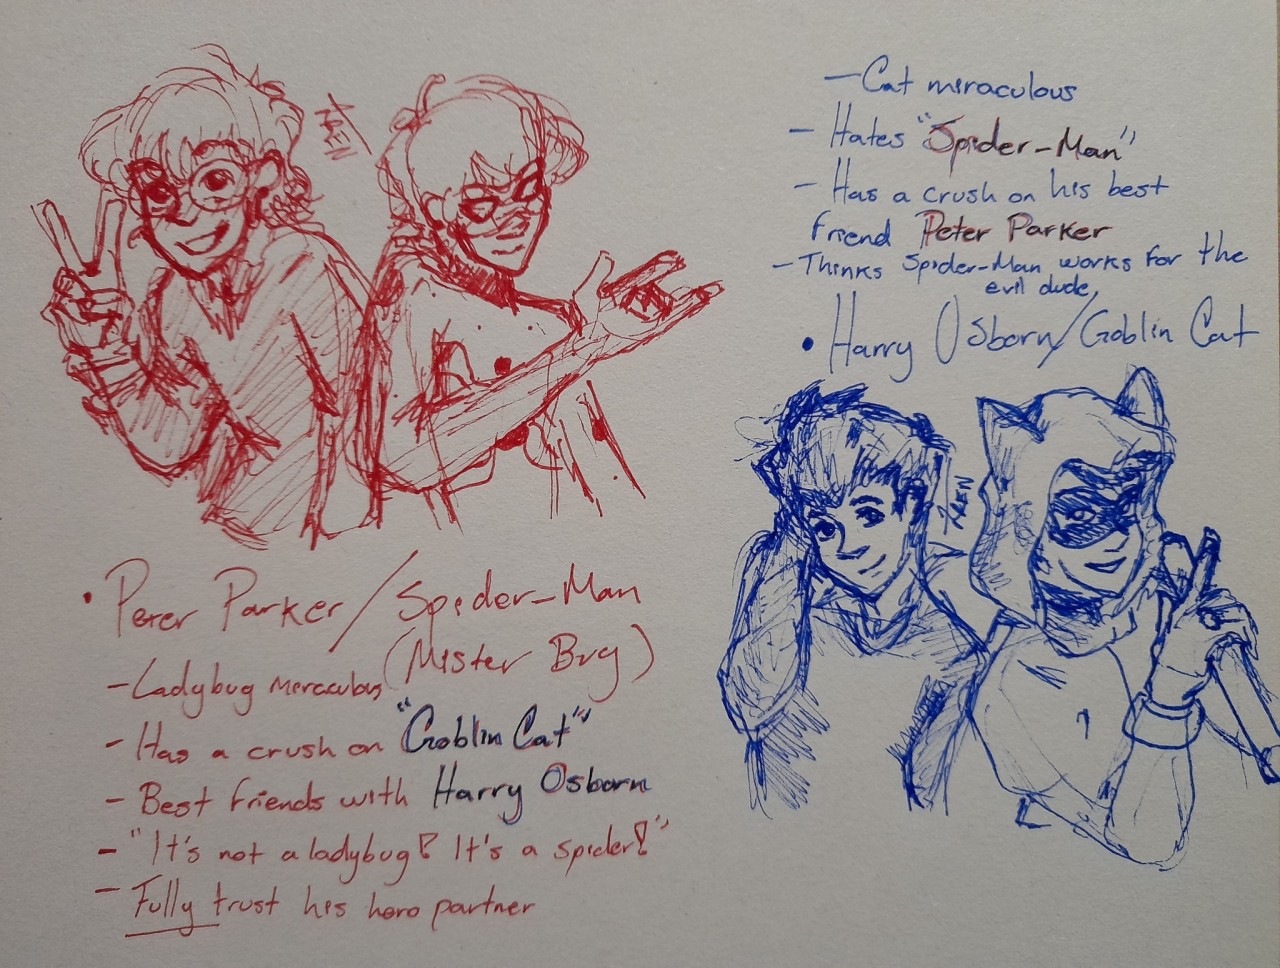 - Cat miraculous
- Hates "Spider-Man"
- Has a crush on his best
friend Peter Parker
- Thinks Spider-Man works for the
evil dude
• Harry Osborn/Goblin Cat
• Peter Parker/Spider-Man
(Mister Bug)
- Ladybug miraculous
- Has a crush on "Goblin Cat"
- Best friends with Harry Osborn
- "It's not a ladybug! It's a spider!"
- Fully trust his hero partner